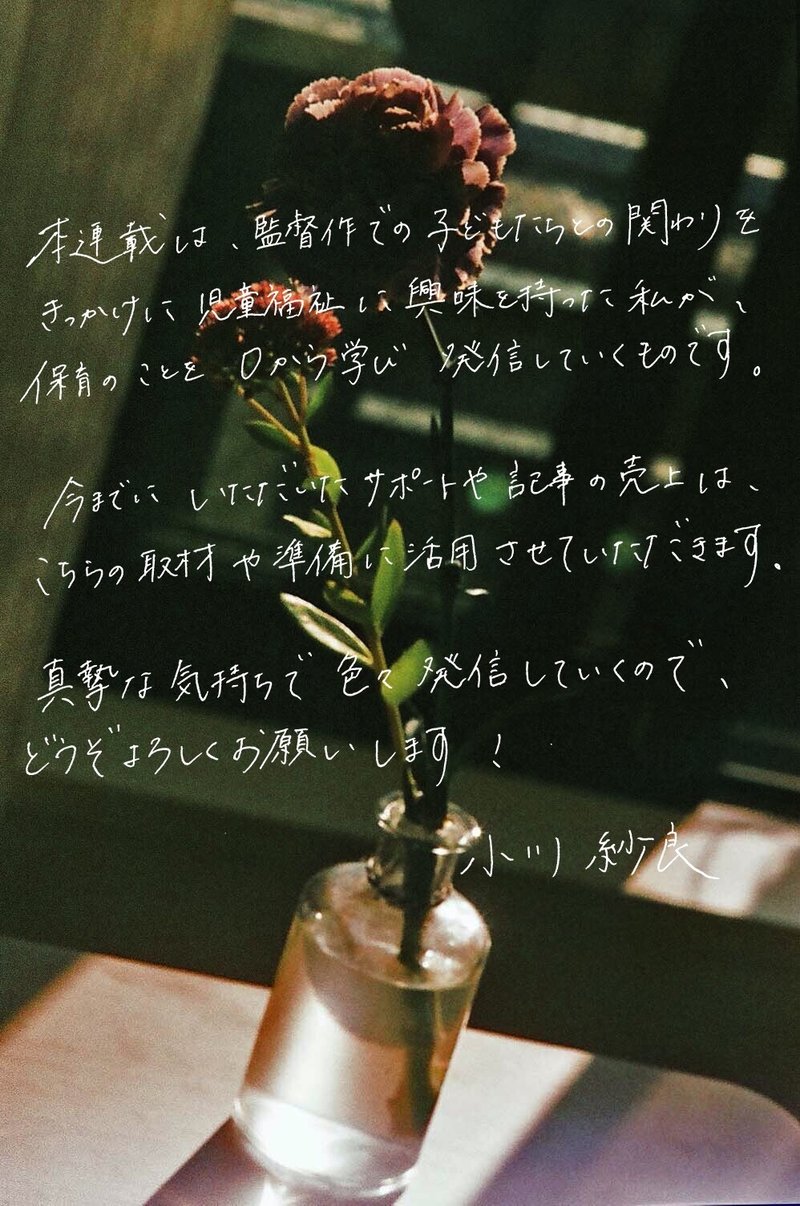 本連載は、監督作での子どもたちとの関わりを
きっかけに児童福祉に興味を持った私が、
保育のことを0から学び発信していくものです。
今までにいただいたサポートや記事の売上は、
こちらの取材や準備に活用させていただきます。
真摯な気持ちで色々発信していくので、
どうぞよろしくお願いします！
小川紗良